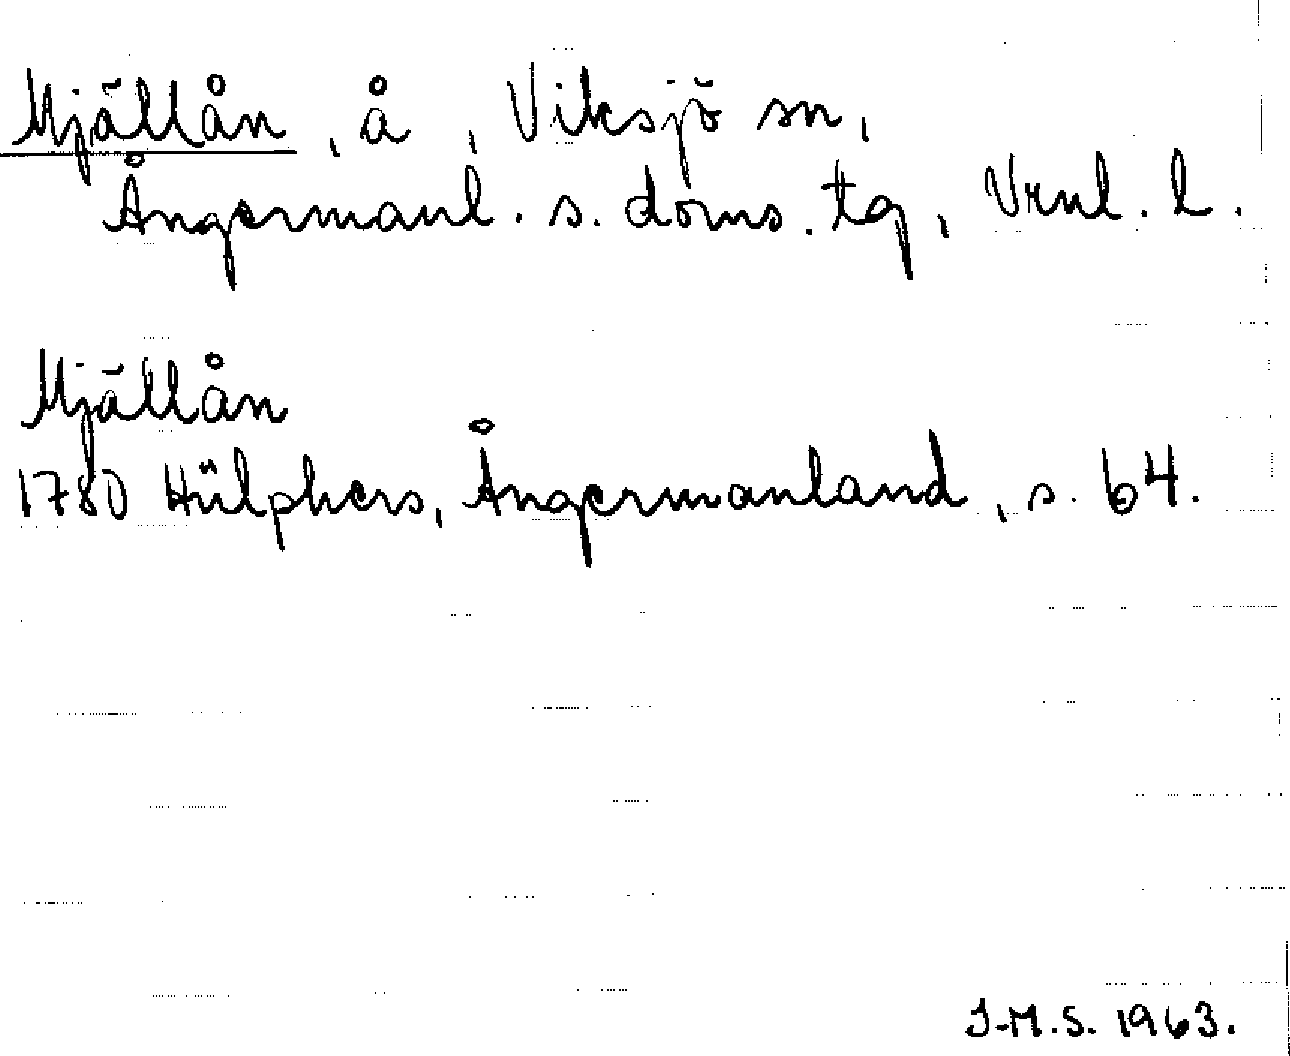 Mjällån, å, Viksjö sn,
Ångermanl. s. doms. tg, Vrnl. l.
Mjällån
1780 Hülphers, Ångermanland, s. 64.
J-M.S. 1963.